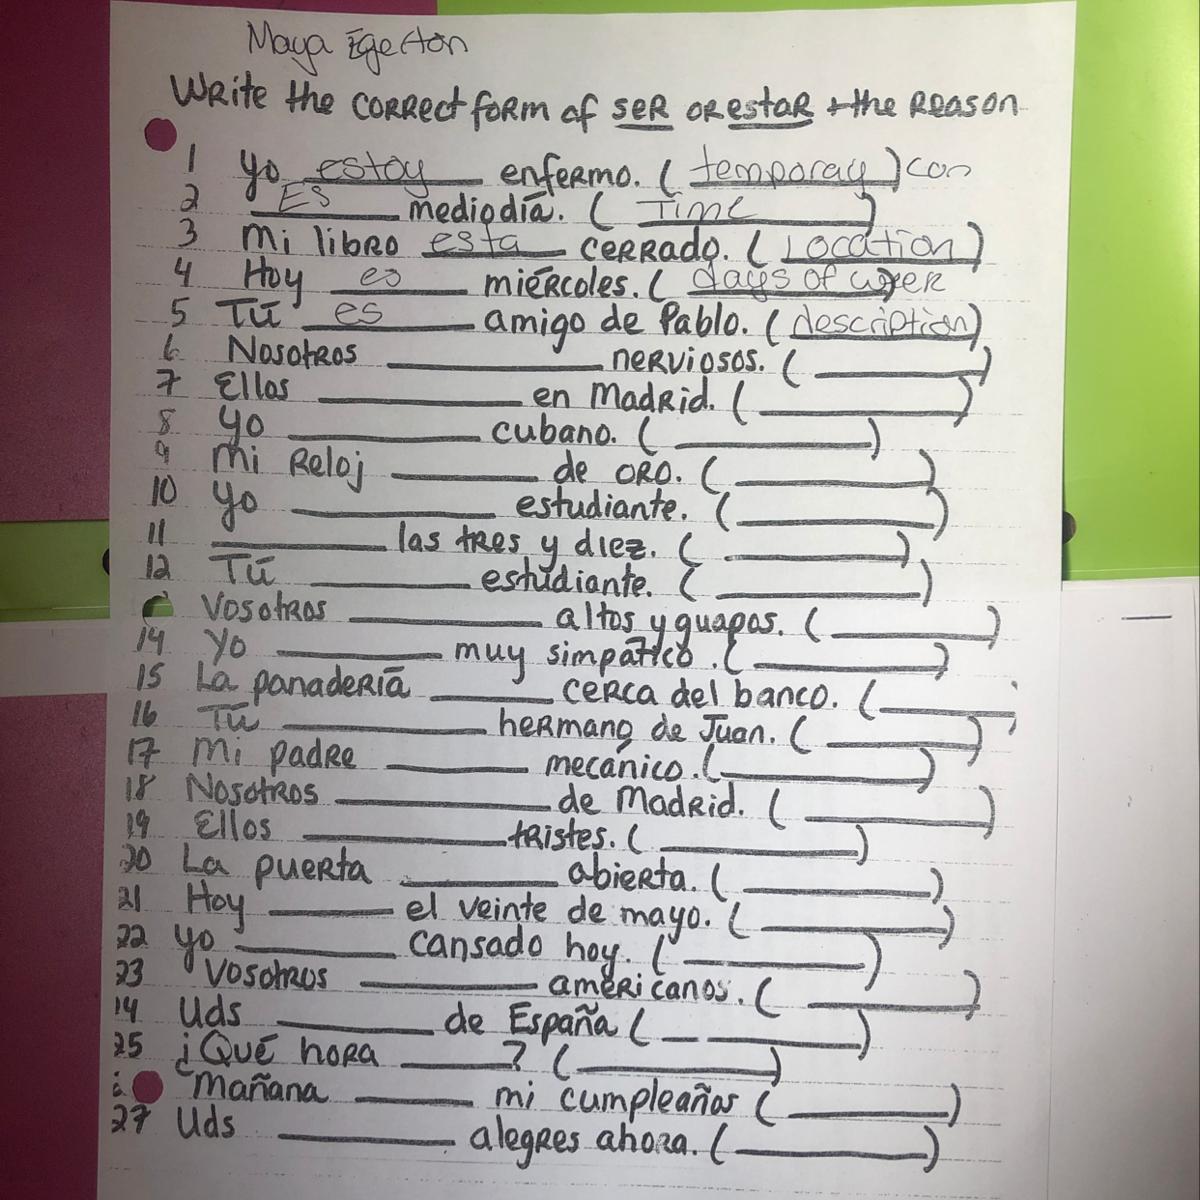 Maya Egerton
Write the correct form of ser or estar + the reason
1 Yo estoy enfermo. (temporay) con
2 Es mediodía. (Time)
3 Mi libro esta cerrado. (Location)
4 Hoy es miércoles. (days of week
5 Tú es amigo de Pablo. (description)
6 Nosotros ________ nerviosos. (________)
7 Ellos ________ en Madrid. (________)
8 Yo ________ cubano. (________)
9 Mi reloj ________ de oro. (________)
10 Yo ________ estudiante. (________)
11 ________ las tres y diez. (________)
12 Tú ________ estudiante. (________)
Vosotros ________ altos y guapos. (________)
14 Yo ________ muy simpático. (________)
15 La panadería ________ cerca del banco. (________)
16 Tú ________ hermano de Juan. (________)
17 Mi padre ________ mecánico. (________)
18 Nosotros ________ de Madrid. (________)
19 Ellos ________ tristes. (________)
20 La puerta ________ abierta. (________)
21 Hoy ________ el veinte de mayo. (________)
22 Yo ________ cansado hoy. (________)
23 Vosotros ________ américanos. (________)
14 Uds ________ de España (________)
25 ¿Qué hora ________? (________)
Mañana ________ mi cumpleaños (________)
27 Uds ________ alegres ahora. (________)